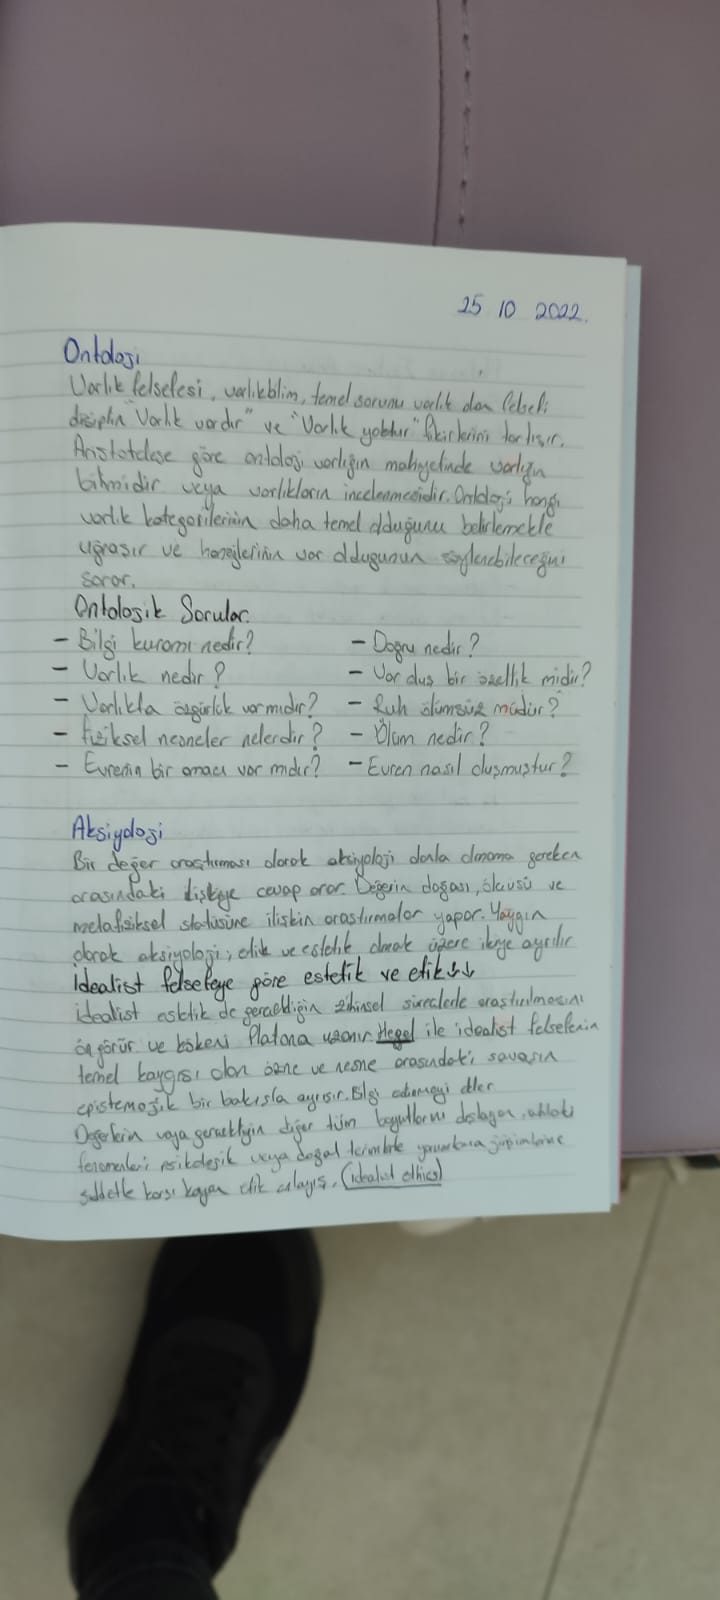 25 10 2022.
Ontoloji
Varlık felsefesi, varlıkbilim, temel sorunu varlık olan felsefi
disiplin "Varlık vardır" ve "Varlık yoktur" fikirlerini tartışır.
Aristotelese göre ontoloji varlığın mahiyetinde varlığın
bilimidir veya varlıkların incelenmesidir. Ontoloji hangi
varlık kategorilerinin daha temel olduğunu belirlemekle
uğraşır ve hangilerinin var olduğunun söylenebileceğini
sorar.
Ontolojik Sorular.
- Bilgi kuramı nedir? - Doğru nedir?
- Varlık nedir? - Var oluş bir özellik midir?
- Varlıkta özgürlük var mıdır? - Ruh ölümsüz müdür?
- fiziksel nesneler nelerdir? - Ölüm nedir?
- Evrenin bir amacı var mıdır? - Evren nasıl oluşmuştur?
Aksiyoloji
Bir değer araştırması olarak aksiyoloji olanla olmama gereken
arasındaki ilişkiye cevap arar. Değerin doğası, ölçüsü ve
metafiziksel statüsüne ilişkin araştırmalar yapar. Yaygın
olarak aksiyoloji, etik ve estetik olarak üzere ikiye ayrılır
İdealist felsefeye göre estetik ve etik↓↓
idealist estetik de gerçekliğin zihinsel süreçlerle araştırılmasını
öngörür ve kökeni Platona uzanır Hegel ile idealist felsefenin
temel kaygısı olan özne ve nesne arasındaki savaşın
epistemojik bir bakışla ayrışır. Bilgi edinmeyi diler
Değerlerin veya gerçekliğin diğer tüm boyutlarını dışlayan, ahlaki
fenomenleri psikolojik veya doğal terimlerle yorumlama girişimlerine
şiddetle karşı koyan etik anlayış. (idealist ethics)